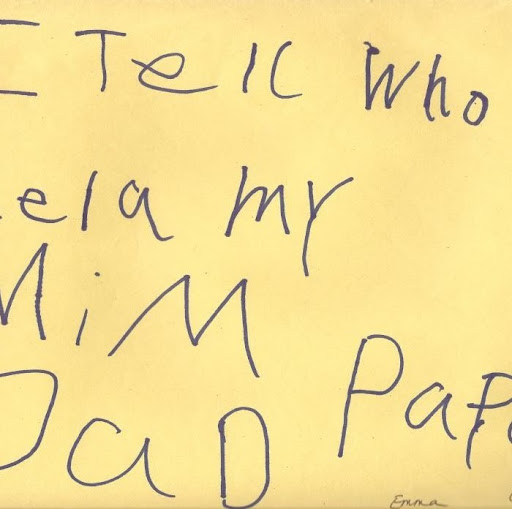 I Telc Who
ela my
MiM
DaD PaPa
Emma